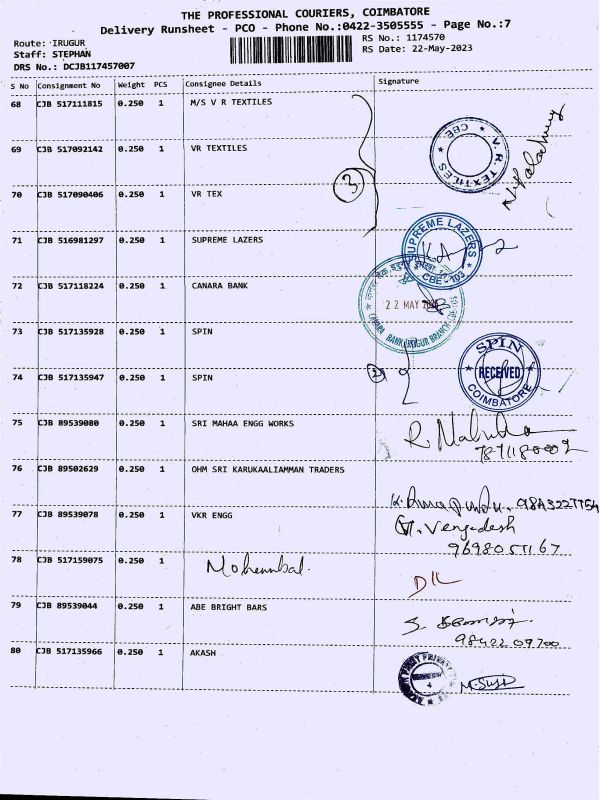 THE PROFESSIONAL COURIERS, COIMBATORE
Delivery Runsheet - PCO - Phone No.:0422-3505555 - Page No.:7
Route: IRUGUR
Staff: STEPHAN
DRS No.: DCJB117457007
RS No.: 1174570
RS Date: 22-May-2023
S No Consignment No Weight PCS Consignee Details Signature
68 CJB 517111815 0.250 1 M/S V R TEXTILES
V.R. TEXTILES CBE
69 CJB 517092142 0.250 1 VR TEXTILES
3
70 CJB 517090406 0.250 1 VR TEX
71 CJB 516981297 0.250 1 SUPREME LAZERS
SUPREME LAZERS CBE - 103
72 CJB 517118224 0.250 1 CANARA BANK
22 MAY
CANARA BANK IRUGUR BRANCH
73 CJB 517135928 0.250 1 SPIN
SPIN RECEIVED COIMBATORE
74 CJB 517135947 0.250 1 SPIN
2
75 CJB 89539080 0.250 1 SRI MAHAA ENGG WORKS
76 CJB 89502629 0.250 1 OHM SRI KARUKAALIAMMAN TRADERS
77 CJB 89539078 0.250 1 VKR ENGG
Vengedesh
9698051167
78 CJB 517159075 0.250 1
79 CJB 89539044 0.250 1 ABE BRIGHT BARS
98422 09700
80 CJB 517135966 0.250 1 AKASH
M. Suji